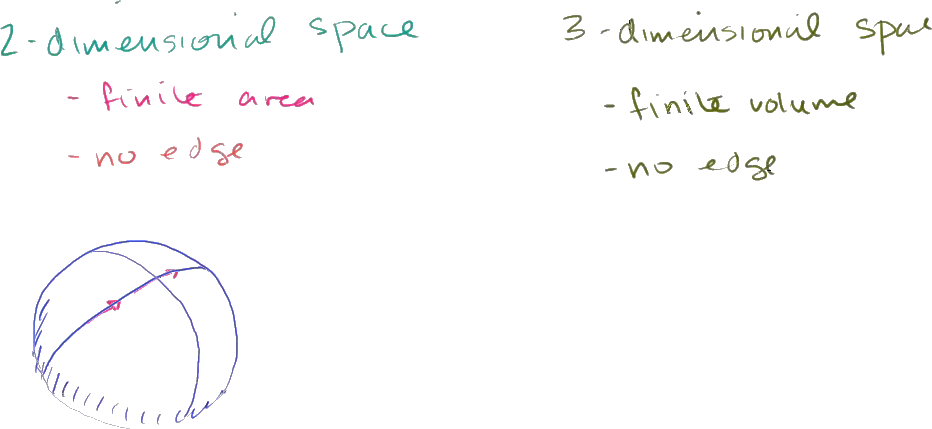 2-dimensional space
- finite area
- no edge
3-dimensional spac
- finite volume
- no edge